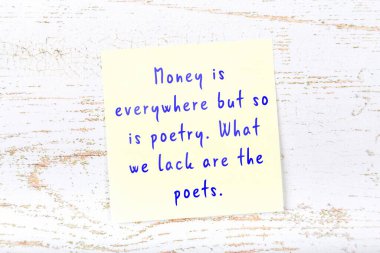 Money is
everywhere but so
is poetry. What
we lack are the
poets.